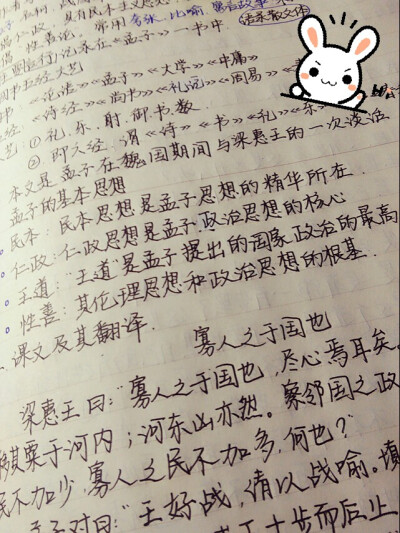 具有民本主义思想
性善论。常用夸张、比喻、寓言故事
(语录散文体)
记录在《孟子》一书中.
《论语》《孟子》《大学》《中庸》
《诗经》《尚书》《礼记》《周易》
艺:①礼.乐.射.御.书.数.
②即六经,谓《诗》《书》《礼》《乐》
本文是孟子在魏国期间与梁惠王的一次谈话
孟子的基本思想
民本:民本思想是孟子思想的精华所在.
仁政:仁政思想是孟子政治思想的核心
王道:"王道"是孟子提出的国家政治的最高
性善:其伦理思想和政治思想的根基.
课文及其翻译.
寡人之于国也
梁惠王曰:"寡人之于国也,尽心焉耳矣。
移其粟于河内;河东凶亦然。察邻国之政
民不加少,寡人之民不加多,何也?"
孟子对曰:"王好战,请以战喻。填
十步而后止